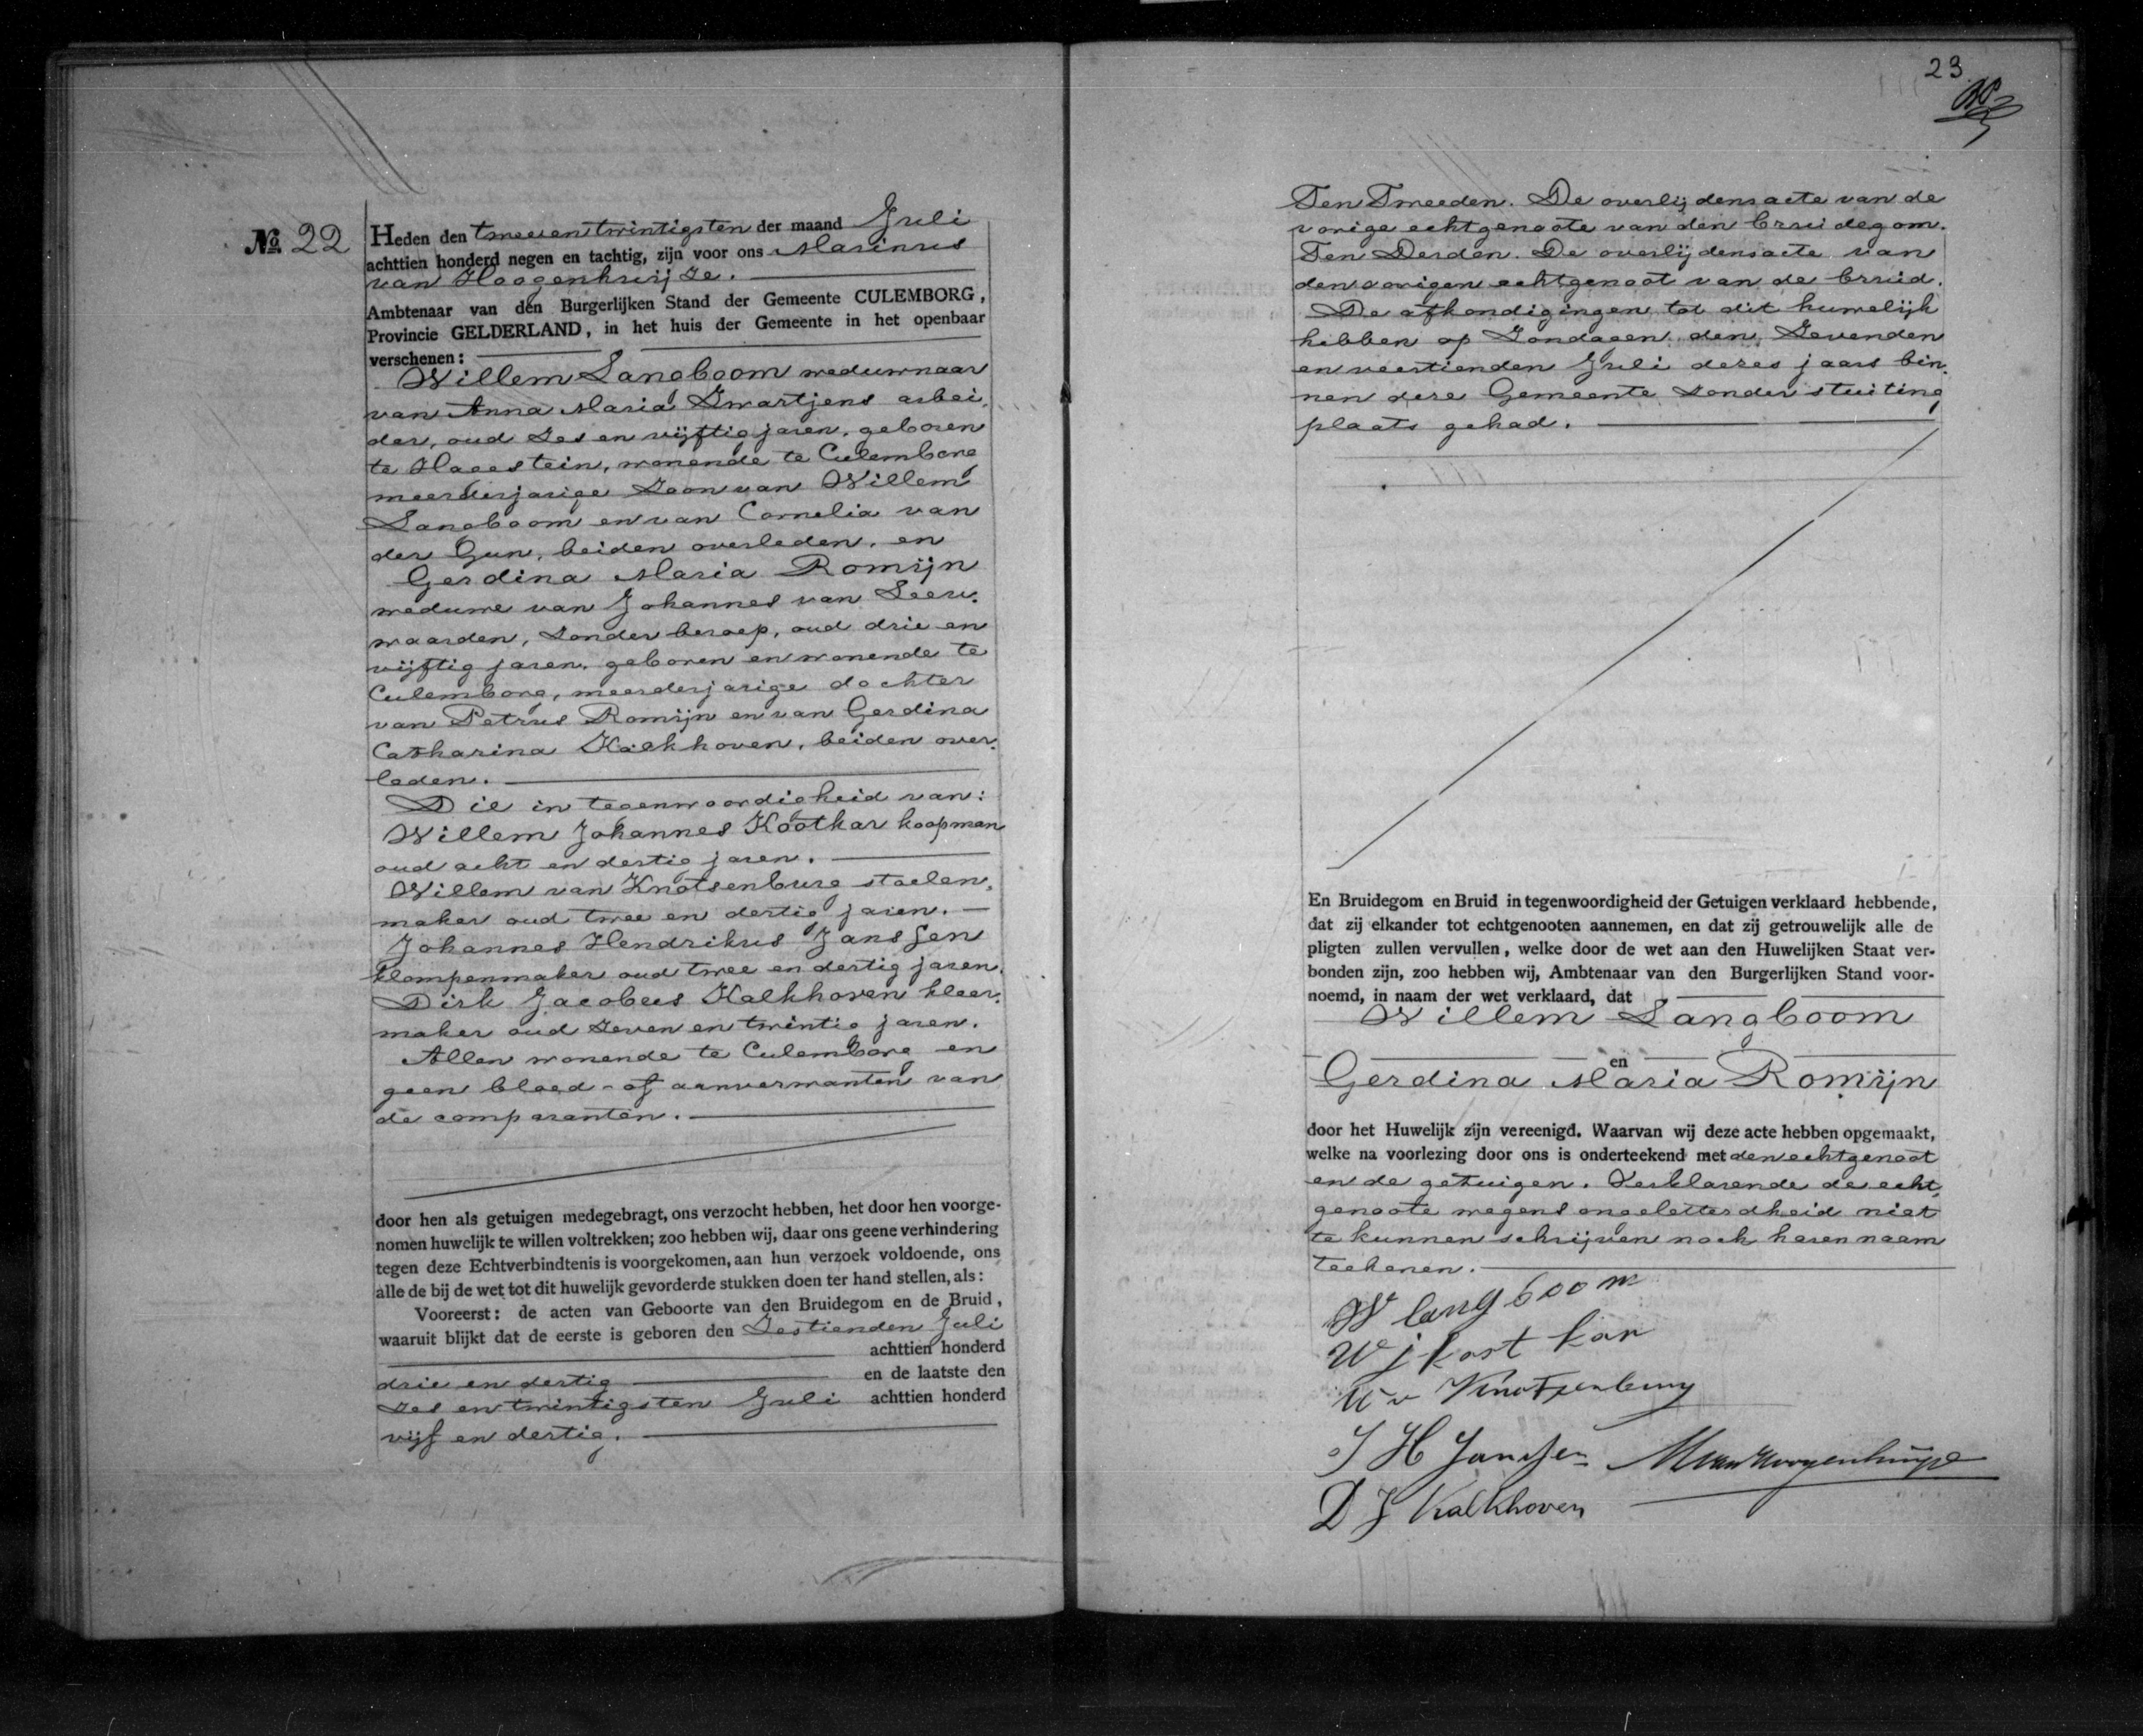 No 22
Heden den twee en twintigsten der maand Juli
achttien honderd negen en tachtig, zijn voor ons Marinus
van Hoogenhuijze.
Ambtenaar van den Burgerlijken Stand der Gemeente CULEMBORG,
Provincie GELDERLAND, in het huis der Gemeente in het openbaar
verschenen:
Willem Langboom weduwnaar
van Anna Maria Zwartjens arbei,
der, oud Zes en vijftig jaren, geboren
te Hagestein, wonende te Culemborg
meerderjarige Zoon van Willem
Langboom en van Cornelia van
der Gun, beiden overleden, en
Gerdina Maria Romijn
weduwe van Johannes van Leeu,
waarden, zonder beroep, oud drie en
vijftig jaren, geboren en wonende te
Culemborg, meerderjarige dochter
van Petrus Romijn en van Gerdina
Catharina Kalkhoven, beiden over,
leden.
Die in tegenwoordigheid van:
Willem Johannes Kootkar koopman
oud acht en dertig jaren.
Willem van Knotsenburg stoelen,
maker oud twee en dertig jaren.
Johannes Hendrikus Janssen
klompenmaker oud twee en dertig jaren.
Dirk Jacobus Kalkhoven kleer,
maker oud Zeven en twintig jaren.
Allen wonende te Culemborg en
geen bloed- of aanverwanten van
de comparanten.
door hen als getuigen medegebragt, ons verzocht hebben, het door hen voorge-
nomen huwelijk te willen voltrekken; zoo hebben wij, daar ons geene verhindering
tegen deze Echtverbindtenis is voorgekomen, aan hun verzoek voldoende, ons
alle de bij de wet tot dit huwelijk gevorderde stukken doen ter hand stellen, als:
Vooreerst: de acten van Geboorte van den Bruidegom en de Bruid,
waaruit blijkt dat de eerste is geboren den Zestienden Juli
achttien honderd
drie en dertig en de laatste den
Zes en twintigsten Juli achttien honderd
vijf en dertig.
23
Ten Tweeden. De overlijdensacte van de
vorige echtgenoote van den bruidegom.
Ten Derden. De overlijdensacte van
den vorigen echtgenoot van de bruid.
De afkondigingen tot dit huwelijk
hebben op Zondagen den Zevenden
en veertienden Juli dezes jaars bin,
nen deze Gemeente zonder stuiting
plaats gehad.
En Bruidegom en Bruid in tegenwoordigheid der Getuigen verklaard hebbende,
dat zij elkander tot echtgenooten aannemen, en dat zij getrouwelijk alle de
pligten zullen vervullen, welke door de wet aan den Huwelijken Staat ver-
bonden zijn, zoo hebben wij, Ambtenaar van den Burgerlijken Stand voor-
noemd, in naam der wet verklaard, dat
Willem Langboom
en
Gerdina Maria Romijn
door het Huwelijk zijn vereenigd. Waarvan wij deze acte hebben opgemaakt,
welke na voorlezing door ons is onderteekend met den echtgenoot
en de getuigen. Verklarende de echt,
genoote wegens ongeletterdheid niet
te kunnen schrijven noch haren naam
teekenen.
W langboom
W j kootkar
W v Knotsenburg
J H Janssen
MvanHoogenhuijze
D J Kalkhoven